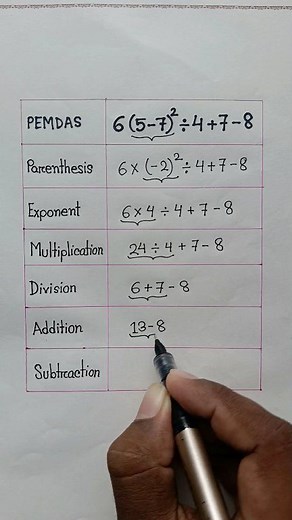 PEMDAS 6(5-7)²÷4+7-8
Parenthesis 6×(-2)²÷4+7-8
Exponent 6×4÷4+7-8
Multiplication 24÷4+7-8
Division 6+7-8
Addition 13-8
Subtraction